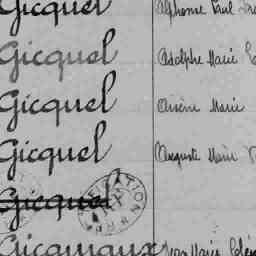 Gicquel Alphonse Paul
Gicquel Adolphe Marie
Gicquel Arsène Marie
Gicquel Auguste Marie
Gicquel
Gicquiaux Jean Marie